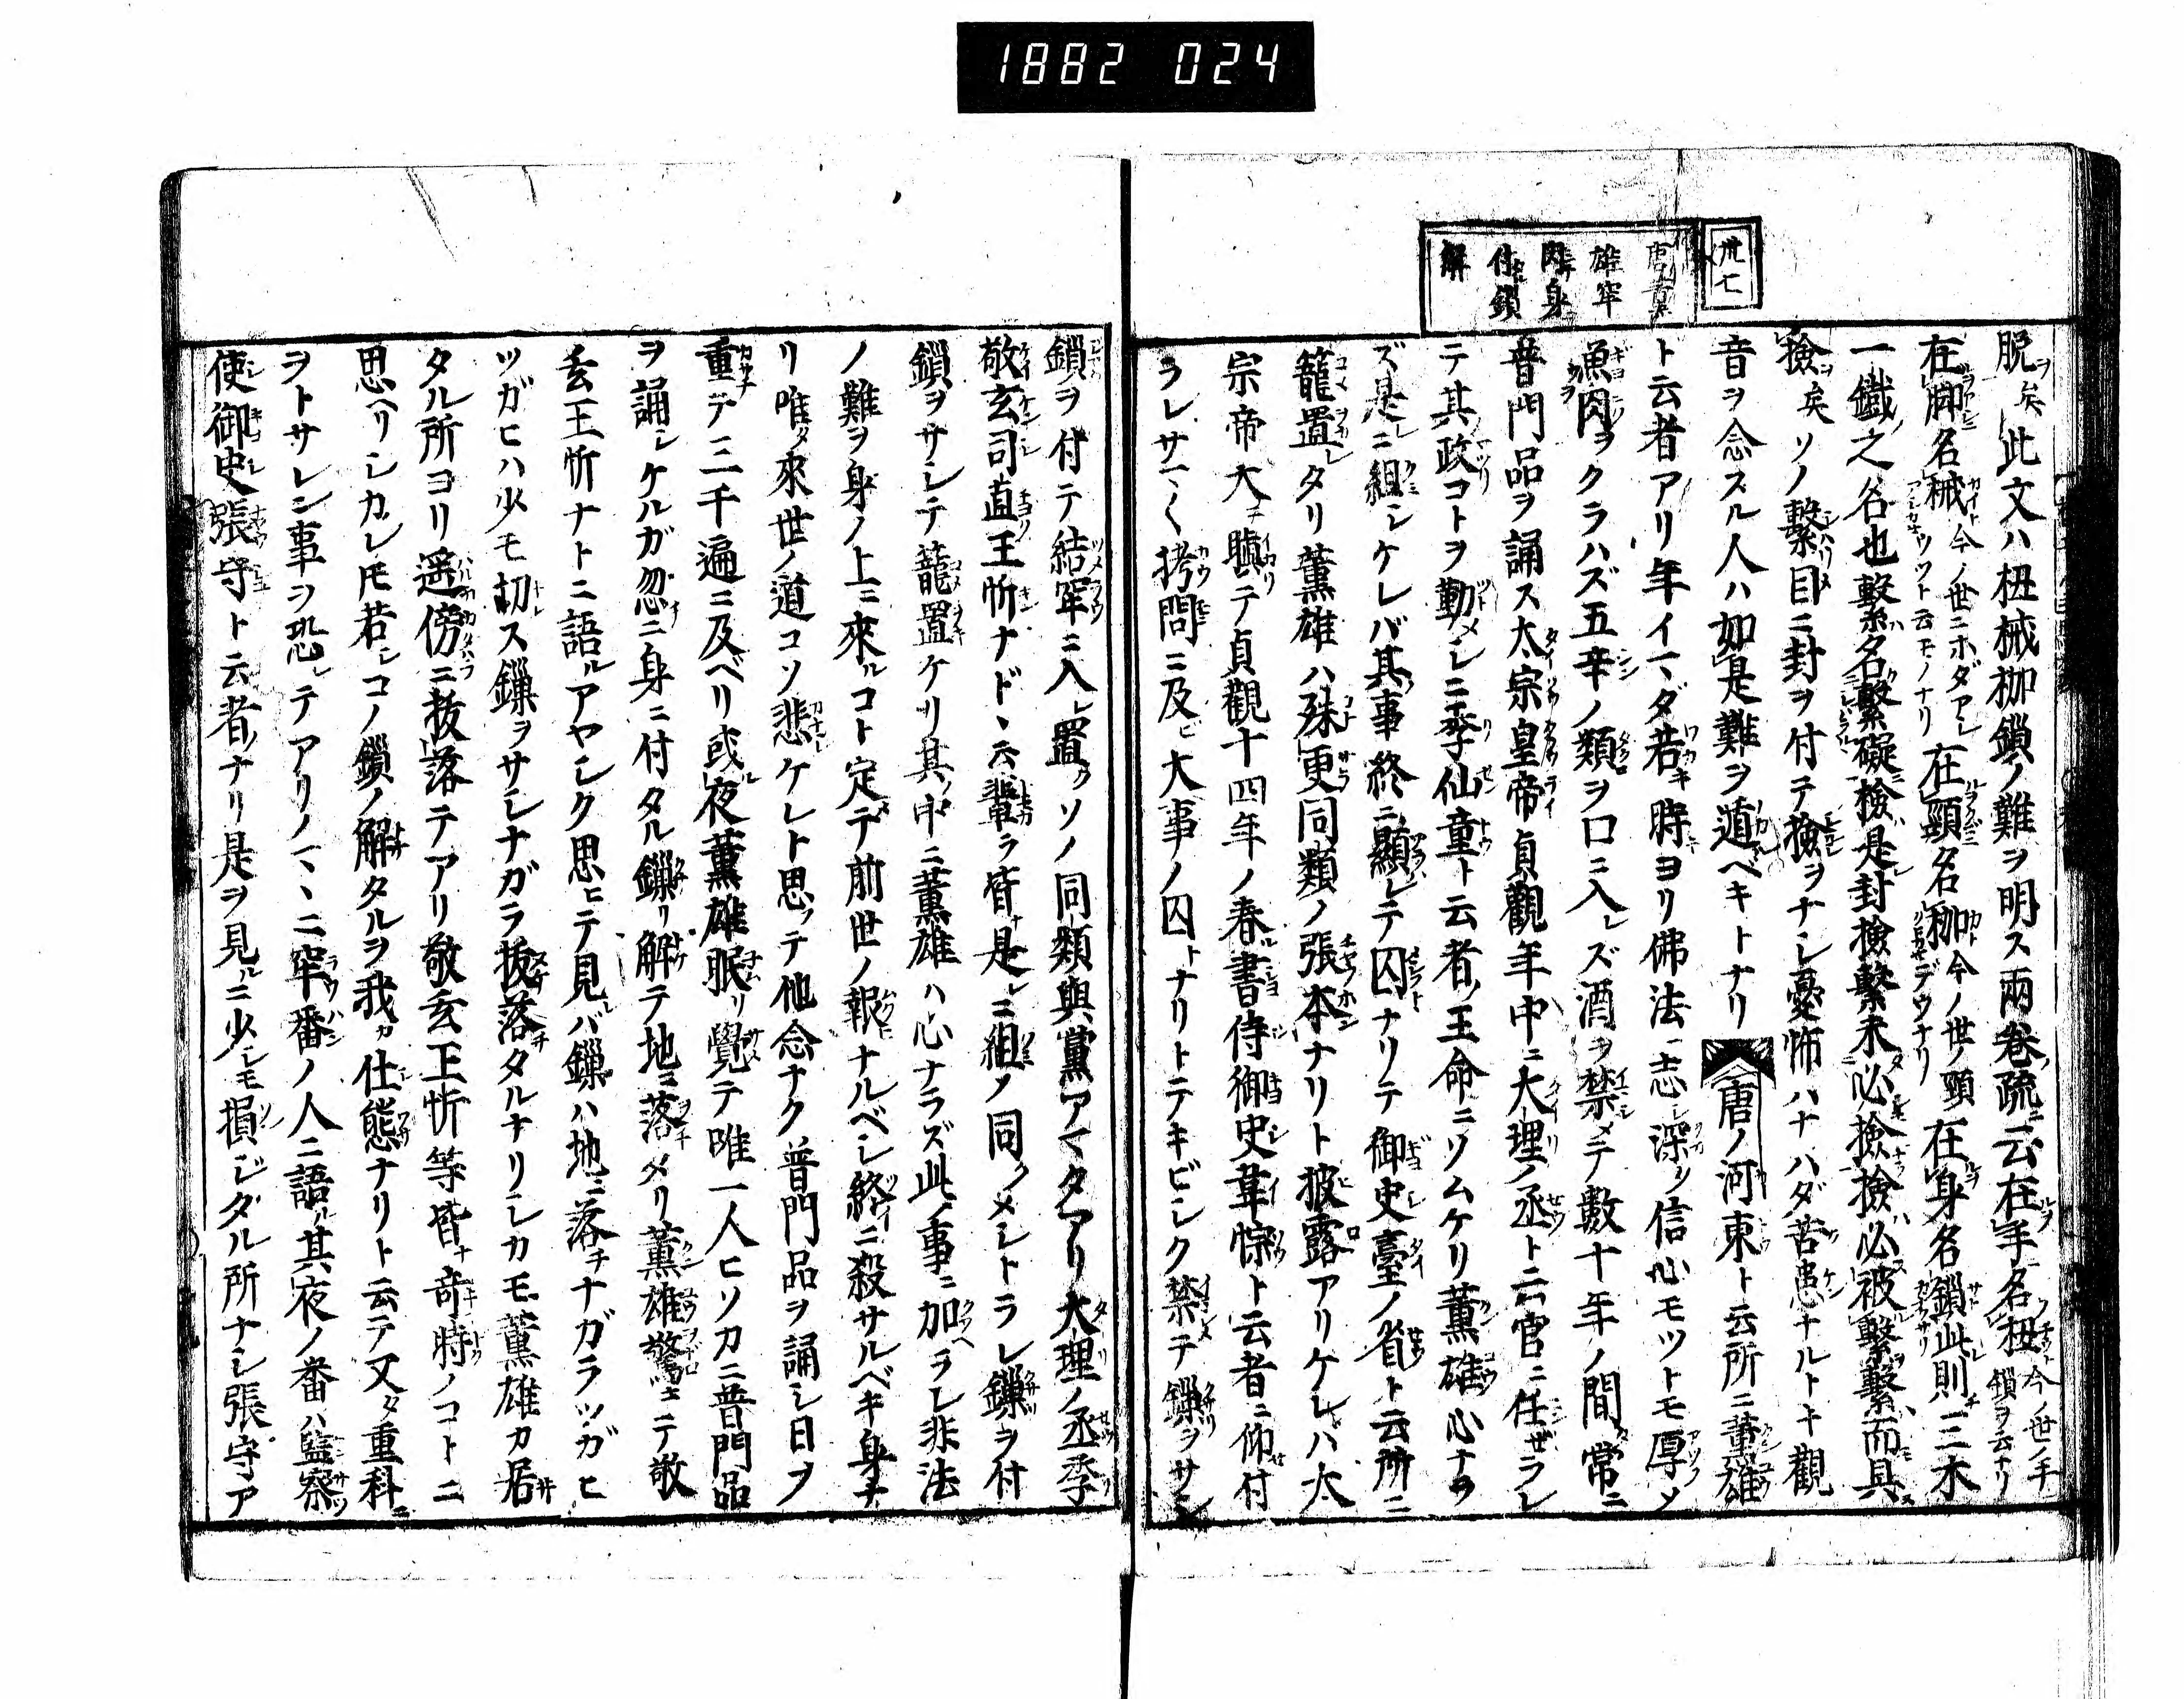 1882 024
卅七
唐董
雄牢
閉身
仕鎖
解
脱矣此文ハ杻械枷鎖ノ難ヲ明ス兩卷疏ニ云在手名杻今ノ世ノ手鎖ヲ云ナリ
在脚名械今ノ世ニホダアシカナツナト云モノナリ在頸名枷今ノ世ノ頸デウナリ在身名鎖此則三木
一鐵之名也繫名繫礙檢是封撿繫未必撿撿必被繫繫而具
撿矣ソノ繫目ニ封ヲ付テ撿ヲナシ憂怖ハナハダ苦患ナルトキ觀
音ヲ念スル人ハ如是難ヲ遁ベキトナリ唐ノ河東ト云所ニ董雄
ト云者アリ年イマダ若キ時ヨリ佛法ニ志シ深ク信心モツトモ厚ソ
魚肉ヲクラハズ五辛ノ類ヲ口ニ入レズ酒ヲ禁メテ數十年ノ間常ニ
普門品ヲ誦ス太宗皇帝貞觀年中ニ大理ノ丞ト云官ニ任ゼラレ
テ其政コトヲ勤メシニ李仙童ト云者ノ王命ニソムケリ薫雄心ナラ
ズ是ニ組シケレバ其事終ニ顯レテ囚ナリテ御史臺ノ省ト云所ニ
籠置レタリ薫雄ハ殊更同類ノ張本ナリト披露アリケレハ太
宗帝大ニ瞋テ貞觀十四年ノ春書侍御史韋悰ト云者ニ仰付
ラレサマ〱拷問ニ及ビ大事ノ囚トナリトテキビシク禁テ鏁ヲサシ
鎖ヲ付テ結牢ニ入レ置クソノ同類與黨アマタアリ大理ノ丞李
敬玄司直王忻ナド、云輩ラ皆ナ是レニ組ノ同クメシトラレ鏁ヲ付
鎖ヲサシテ籠置ケリ其中ニ薫雄ハ心ナラズ此ノ事ニ加ヘラレ非法
ノ難ヲ身ノ上ニ來ルコト定テ前世ノ報ナルベシ終ニ殺サルベキ身ナ
リ唯タ來世ノ道コソ悲ケレト思ヒテ他念ナク普門品ヲ誦シ日ヲ
重テ三千遍ニ及ベリ或夜薫雄眠リ覺テ唯一人ヒソカニ普門品
ヲ誦シケルガ忽チニ身ニ付タル鏁リ解テ地ニ落チメリ薫雄驚キテ敬
玄王忻ナトニ語ルアヤシク思ヒテ見レバ鏁ハ地ニ落チナガラツガヒ
ツガヒハ少モ切レス鏁ヲサシナガラ拔落タルナリシカモ薫雄カ居
タル所ヨリ遥傍ニ拔落テアリ敬玄王忻等皆ナ奇時ノコトニ
思ヘリシカレモ若シコノ鎖ノ解タルヲ我カ仕態ナリト云テ又タ重科ニ
ヲトサレン事ヲ恐レテアリノマヽニ牢番ノ人ニ語ル其夜ノ番ハ監察
使御史張守ト云者ナリ是ヲ見ルニ少シモ損ジタル所ナシ張守ア